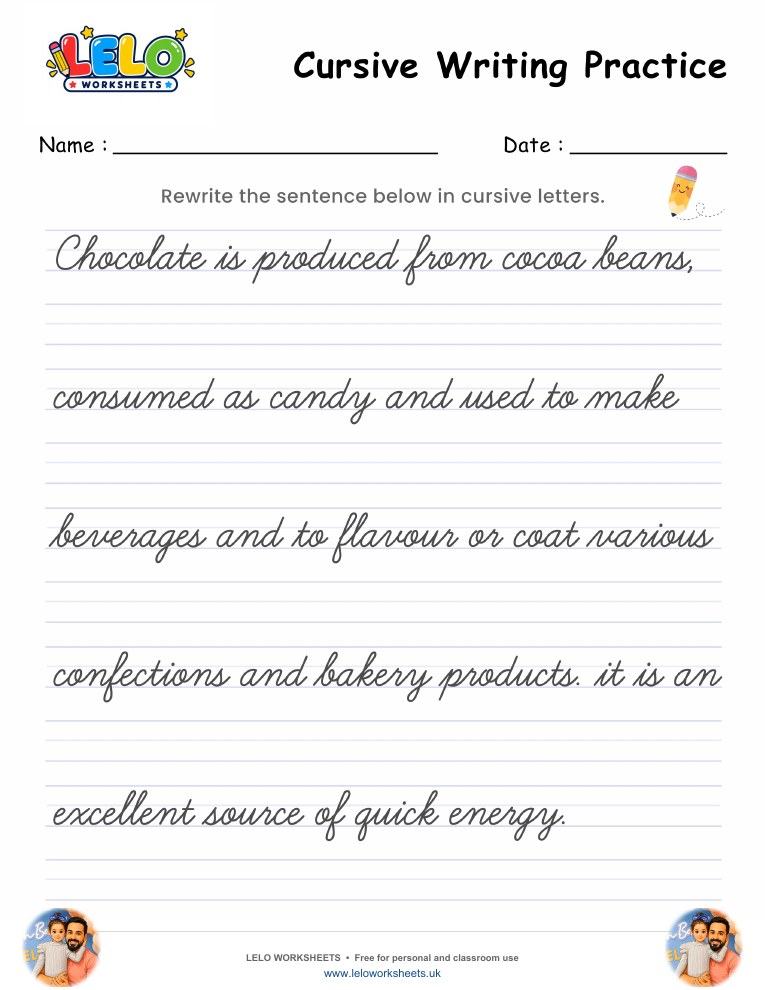 LELO
WORKSHEETS
Cursive Writing Practice
Name : Date :
Rewrite the sentence below in cursive letters.
Chocolate is produced from cocoa beans,
consumed as candy and used to make
beverages and to flavour or coat various
confections and bakery products. it is an
excellent source of quick energy.
LELO WORKSHEETS • Free for personal and classroom use
www.leloworksheets.uk